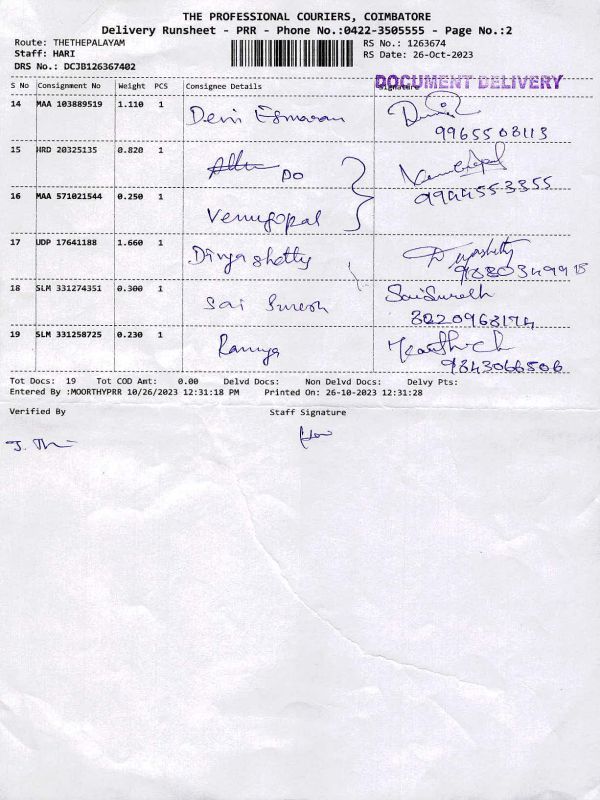 THE PROFESSIONAL COURIERS, COIMBATORE
Delivery Runsheet - PRR - Phone No.:0422-3505555 - Page No.:2
Route: THETHEPALAYAM RS No.: 1263674
Staff: HARI RS Date: 26-Oct-2023
DRS No.: DCJB126367402
DOCUMENT DELIVERY
S No Consignment No Weight PCS Consignee Details Signature
14 MAA 103889519 1.110 1 Devi Eswaran
9965503113
15 HRD 20325135 0.820 1 DO
9944553355
16 MAA 571021544 0.250 1 Venugopal
17 UDP 17641188 1.660 1 Divya shetty Divyashetty
9880349915
18 SLM 331274351 0.300 1 Sai Suresh SaiSuresh
8220968174
19 SLM 331258725 0.230 1 Ramya Karthick
9843066506
Tot Docs: 19 Tot COD Amt: 0.00 Delvd Docs: Non Delvd Docs: Delvy Pts:
Entered By :MOORTHYPRR 10/26/2023 12:31:18 PM Printed On: 26-10-2023 12:31:28
Verified By Staff Signature